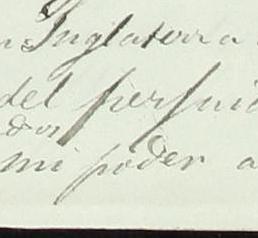 n Inglaterra a
del perjuic
dos
mi poder a